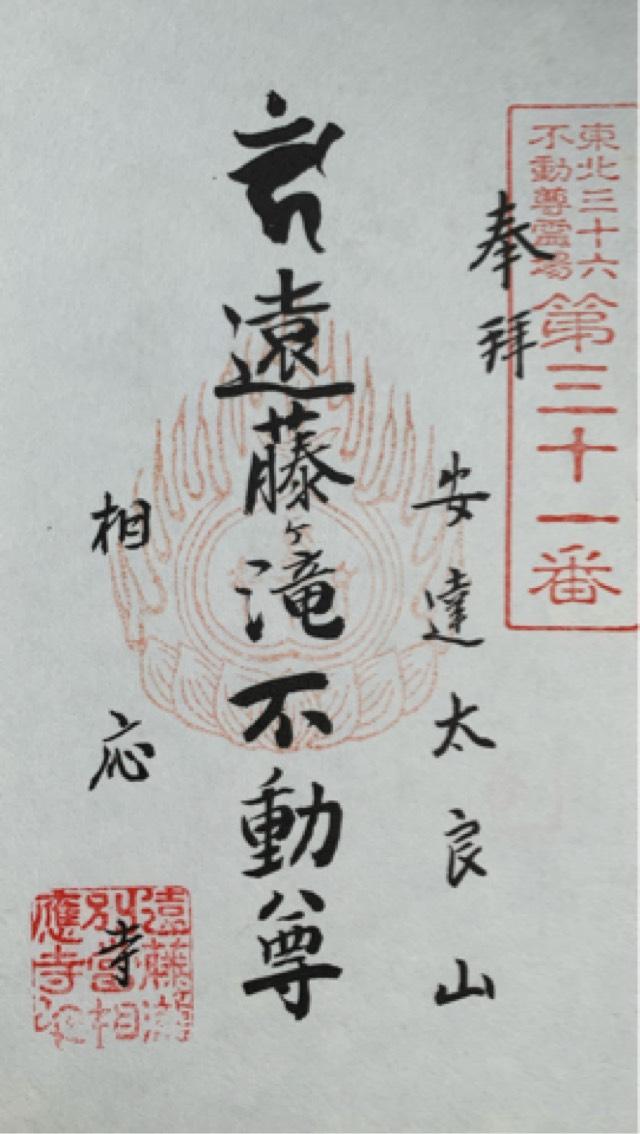 東北三十六
不動尊霊場
第三十一番
奉拝
安達太良山
遠藤ヶ滝不動尊
相応寺
遠藤滝
別當相
應寺